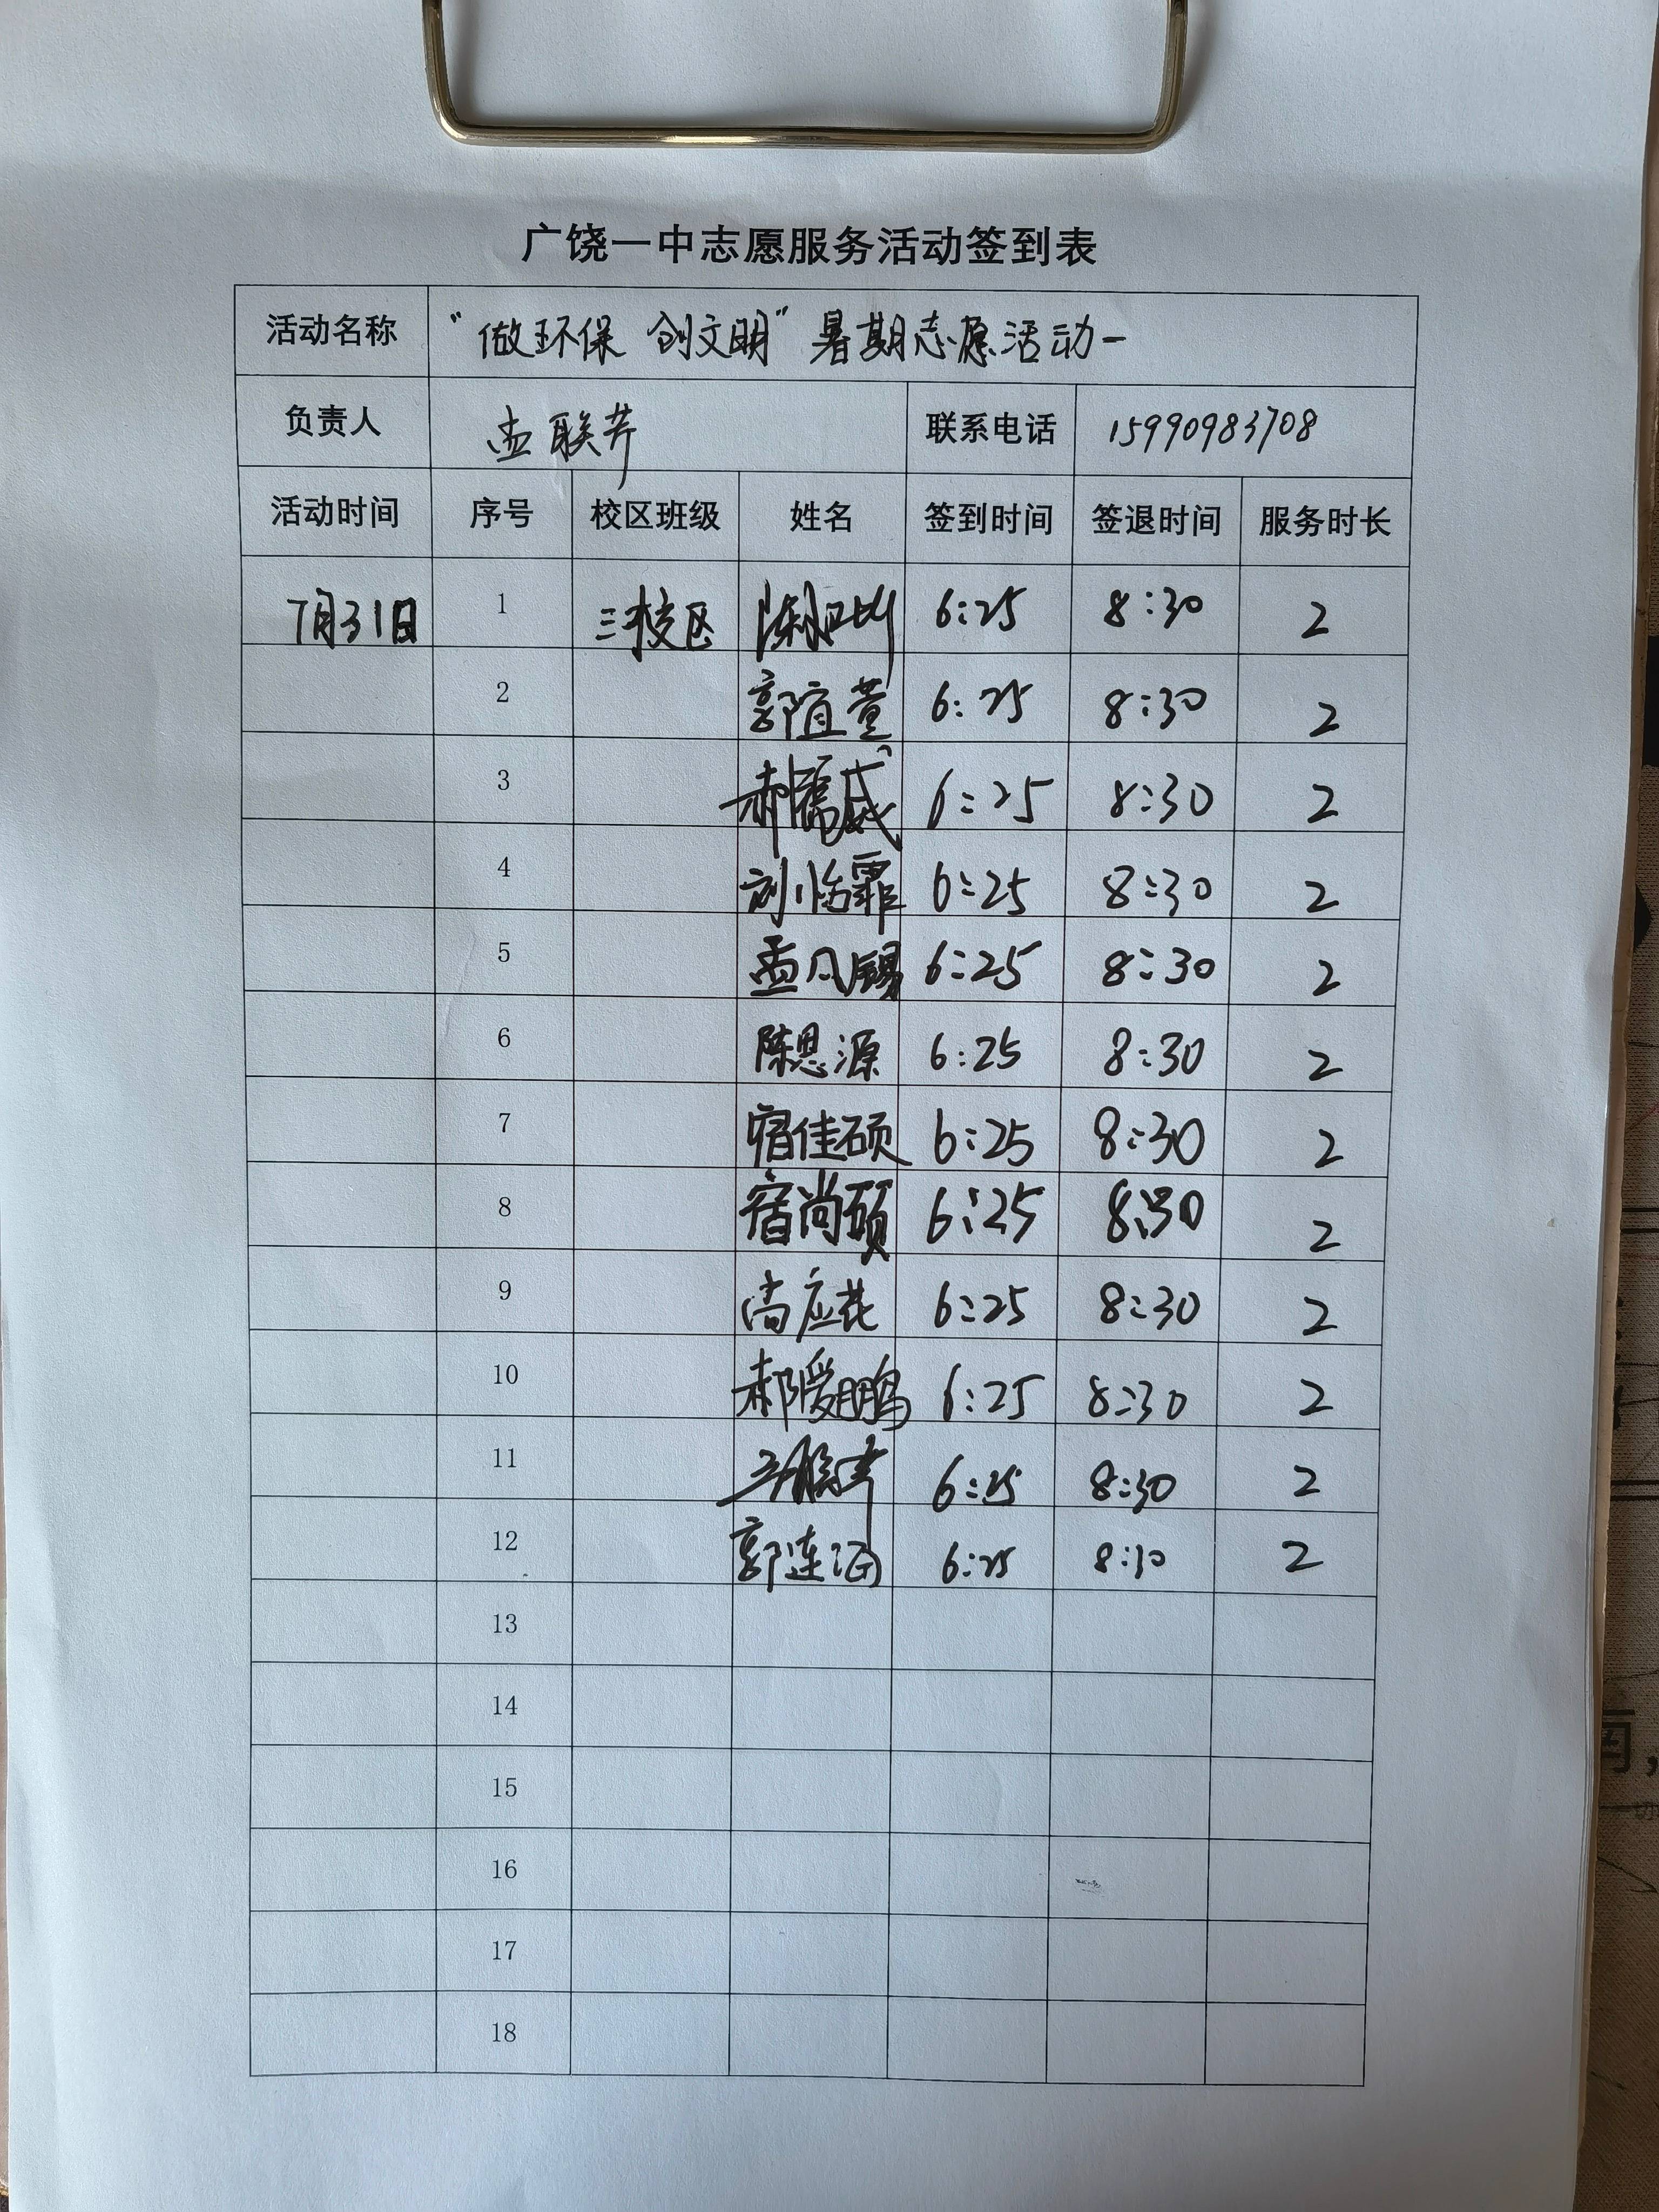 广饶一中志愿服务活动签到表
活动名称 "做环保 创文明"暑期志愿活动一
负责人 孟联芹 联系电话 15990983708
活动时间 序号 校区班级 姓名 签到时间 签退时间 服务时长
7月31日 1 三校区 6:25 8:30 2
2 郭宜萱 6:25 8:30 2
3 郝儒威 6:25 8:30 2
4 刘怡霏 6:25 8:30 2
5 孟凡锡 6:25 8:30 2
6 陈思源 6:25 8:30 2
7 宿佳硕 6:25 8:30 2
8 宿尚硕 6:25 8:30 2
9 尚应花 6:25 8:30 2
10 郝爱鹏 6:25 8:30 2
11 6:25 8:30 2
12 郭连海 6:25 8:30 2
13
14
15
16
17
18